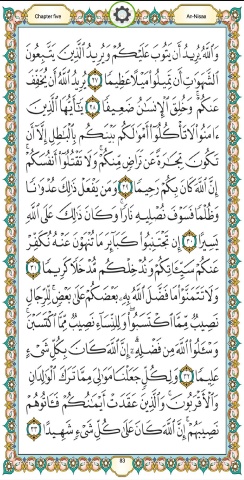 Chapter five
An-Nisaa
وَٱللَّهُ يُرِيدُ أَن يَتُوبَ عَلَيْكُمْ وَيُرِيدُ ٱلَّذِينَ يَتَّبِعُونَ
ٱلشَّهَوَٰتِ أَن تَمِيلُوا۟ مَيْلًا عَظِيمًا ٢٧ يُرِيدُ ٱللَّهُ أَن يُخَفِّفَ
عَنكُمْ ۚ وَخُلِقَ ٱلْإِنسَٰنُ ضَعِيفًا ٢٨ يَٰٓأَيُّهَا ٱلَّذِينَ
ءَامَنُوا۟ لَا تَأْكُلُوٓا۟ أَمْوَٰلَكُم بَيْنَكُم بِٱلْبَٰطِلِ إِلَّآ أَن
تَكُونَ تِجَٰرَةً عَن تَرَاضٍ مِّنكُمْ ۚ وَلَا تَقْتُلُوٓا۟ أَنفُسَكُمْ ۚ
إِنَّ ٱللَّهَ كَانَ بِكُمْ رَحِيمًا ٢٩ وَمَن يَفْعَلْ ذَٰلِكَ عُدْوَٰنًا
وَظُلْمًا فَسَوْفَ نُصْلِيهِ نَارًا ۚ وَكَانَ ذَٰلِكَ عَلَى ٱللَّهِ
يَسِيرًا ٣٠ إِن تَجْتَنِبُوا۟ كَبَآئِرَ مَا تُنْهَوْنَ عَنْهُ نُكَفِّرْ
عَنكُمْ سَيِّـَٔاتِكُمْ وَنُدْخِلْكُم مُّدْخَلًا كَرِيمًا ٣١
وَلَا تَتَمَنَّوْا۟ مَا فَضَّلَ ٱللَّهُ بِهِۦ بَعْضَكُمْ عَلَىٰ بَعْضٍ ۚ لِّلرِّجَالِ
نَصِيبٌ مِّمَّا ٱكْتَسَبُوا۟ ۖ وَلِلنِّسَآءِ نَصِيبٌ مِّمَّا ٱكْتَسَبْنَ ۚ
وَسْـَٔلُوا۟ ٱللَّهَ مِن فَضْلِهِۦٓ ۗ إِنَّ ٱللَّهَ كَانَ بِكُلِّ شَىْءٍ
عَلِيمًا ٣٢ وَلِكُلٍّ جَعَلْنَا مَوَٰلِىَ مِمَّا تَرَكَ ٱلْوَٰلِدَانِ
وَٱلْأَقْرَبُونَ ۚ وَٱلَّذِينَ عَقَدَتْ أَيْمَٰنُكُمْ فَـَٔاتُوهُمْ
نَصِيبَهُمْ ۚ إِنَّ ٱللَّهَ كَانَ عَلَىٰ كُلِّ شَىْءٍ شَهِيدًا ٣٣
83